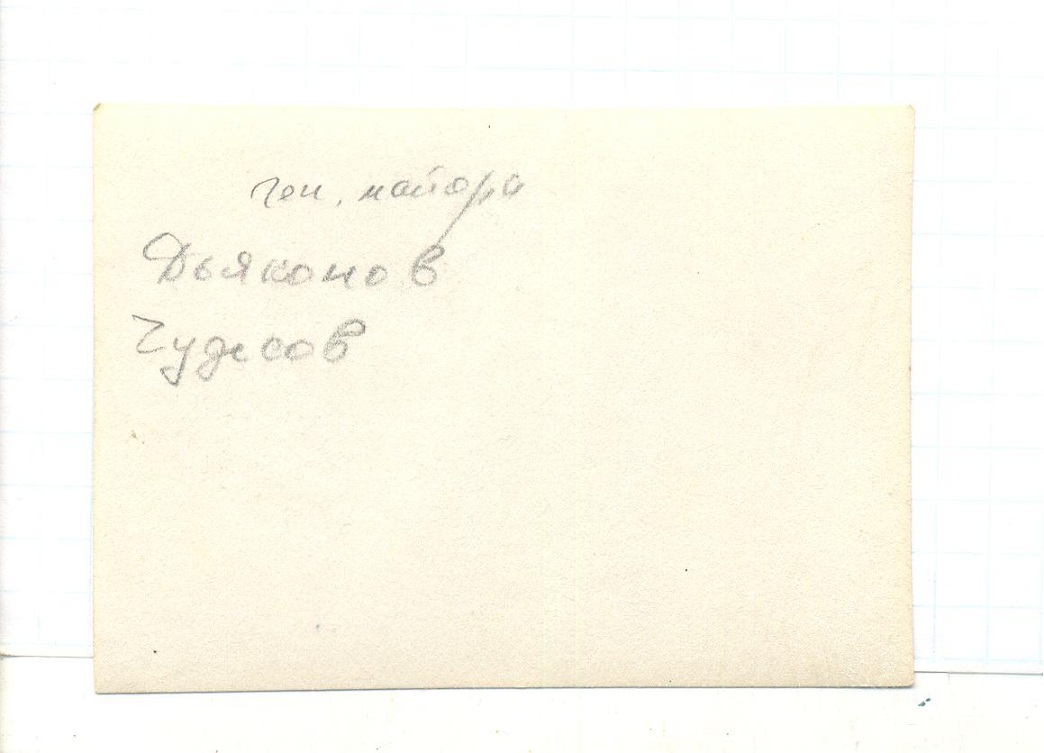 ген. майоры
Дьяконов
Чудесов